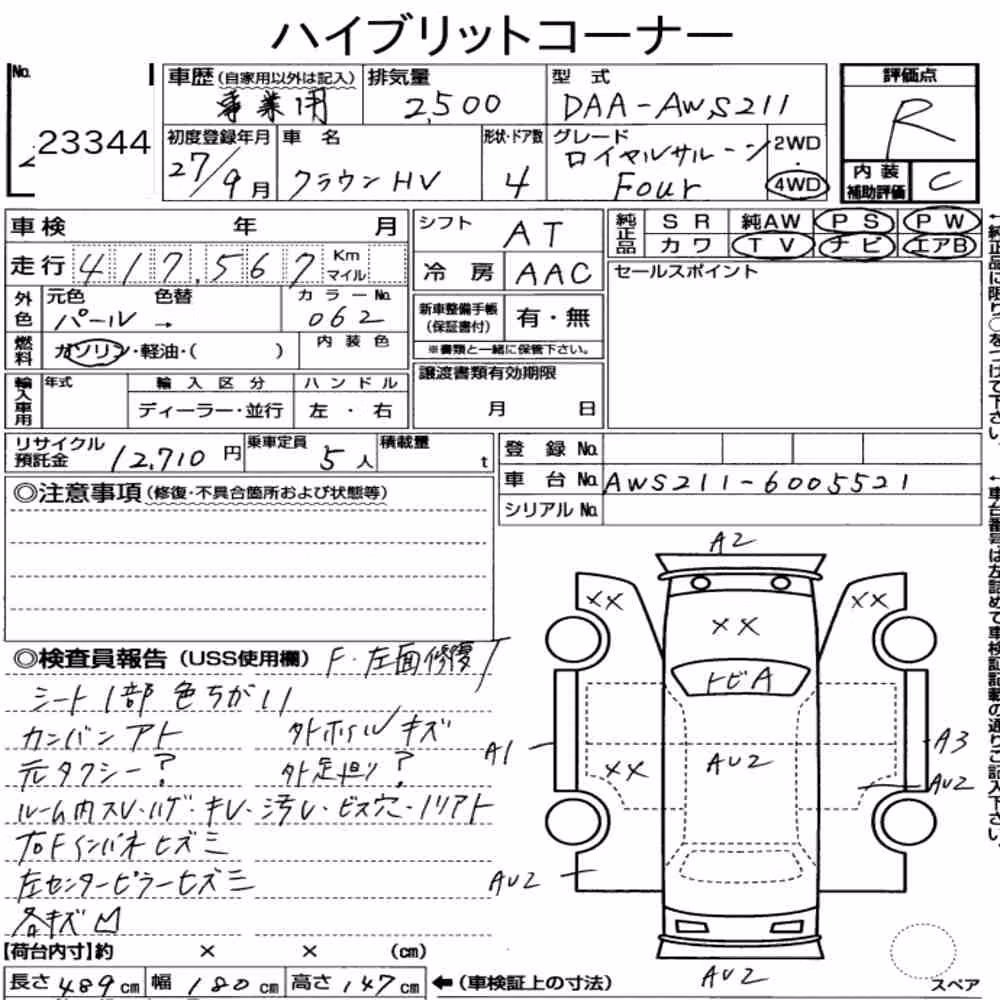 ハイブリットコーナー
No. 23344
車歴 (自家用以外は記入) 事業用
排気量 2,500
型式 DAA-AWS211
評価点 R
初度登録年月 27/9月
車名 クラウン HV
形状・ドア数 4
グレード ロイヤルサルーン Four
2WD・4WD
内装補助評価 C
車検 年 月
シフト AT
純正品 SR 純AW PS PW
カワ TV ナビ エアB
走行 417,567 Km マイル
冷房 AAC
セールスポイント
外色 元色 パール → 色替
カラーNo. 062
新車整備手帳(保証書付) 有・無
※書類と一緒に保管下さい。
燃料 ガソリン・軽油・( )
内装色
譲渡書類有効期限
月 日
輸入車用 年式
輸入区分 ディーラー・並行
ハンドル 左・右
リサイクル預託金 12,710円
乗車定員 5人
積載量 t
登録No.
車台No. AWS211-6005521
シリアルNo.
◎注意事項 (修復・不具合箇所および状態等)
◎検査員報告 (USS使用欄) F・左面修復
シート1部色ちがい
カンバンアト 外ホイルキズ
元タクシー? 外足担り?
ルーム内スレ・ハゲ・キレ・汚レ・ビス穴・ノリアト
右Fインパネヒズミ
左センターピラーヒズミ
各キズ凹
【荷台内寸】約 × × (cm)
長さ 489 cm 幅 180 cm 高さ 147 cm
←(車検証上の寸法)
A2
XX XX
XX
トビA
A1 A3
XX AU2 AU2
AU2
AU2
スペア
←純正品に限り○をつけて下さい。
←車台番号は左詰めで車検証記載の通りご記入下さい。